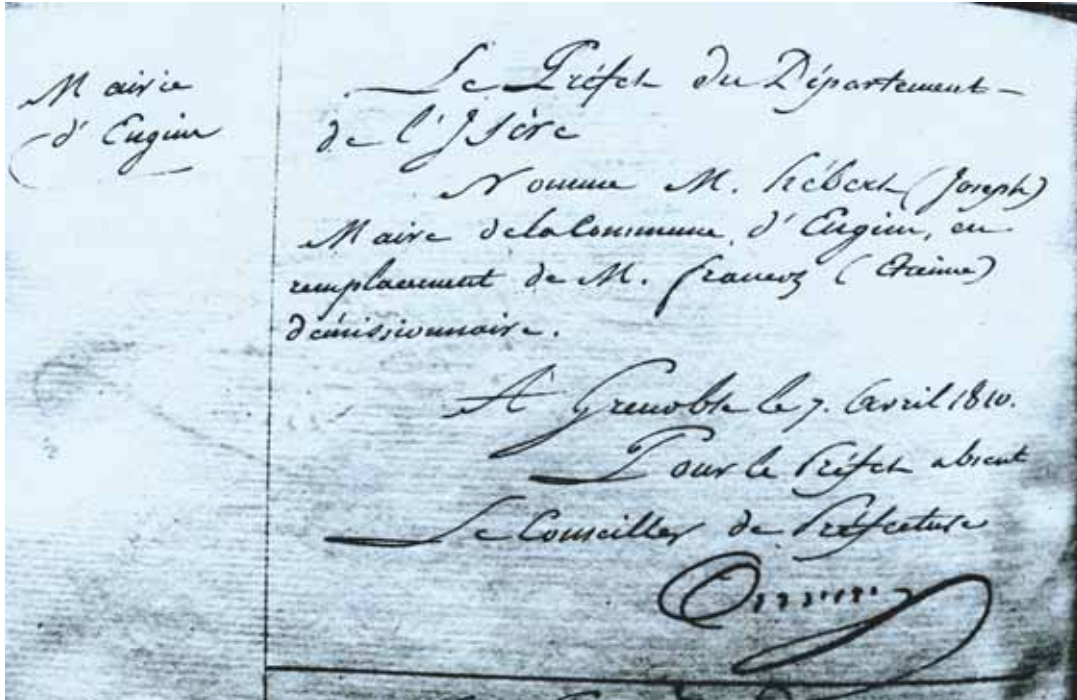 Mairie
d'Engins
Le Préfet du Département
de l'Isère
Nomme M. hébert (Joseph)
Maire de la Commune d'Engins, en
remplacement de M. francoz (Etienne)
démissionnaire.
A Grenoble le 7. Avril 1810.
Pour le Préfet absent
Le Conseiller de Préfecture